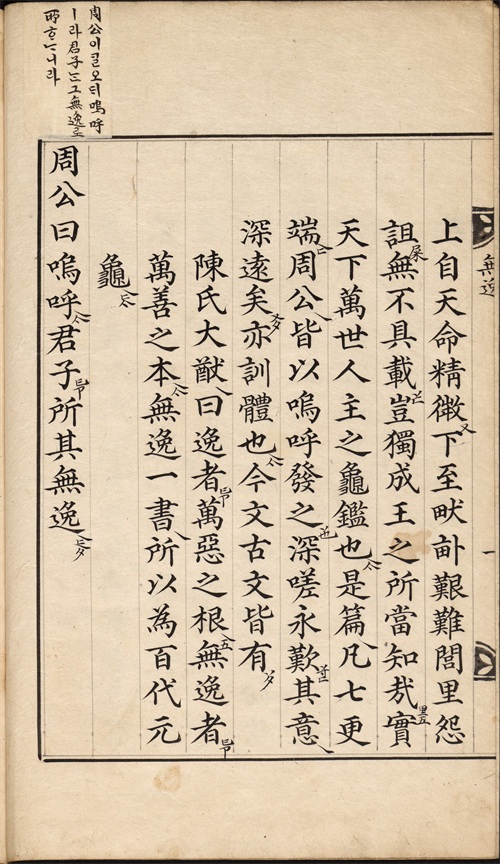 無逸
一
上自天命精微下至畎畝艱難閭里怨
詛無不具載豈獨成王之所當知哉實
天下萬世人主之龜鑑也是篇凡七更
端周公皆以嗚呼發之深嗟永歎其意
深遠矣亦訓體也今文古文皆有
陳氏大猷曰逸者萬惡之根無逸者
萬善之本無逸一書所以為百代元
龜
周公曰嗚呼君子所其無逸
周公이ᄀᆞᆯ오ᄃᆡ嗚呼
ㅣ라君子는그無逸로
所ᄒᆞ느니라